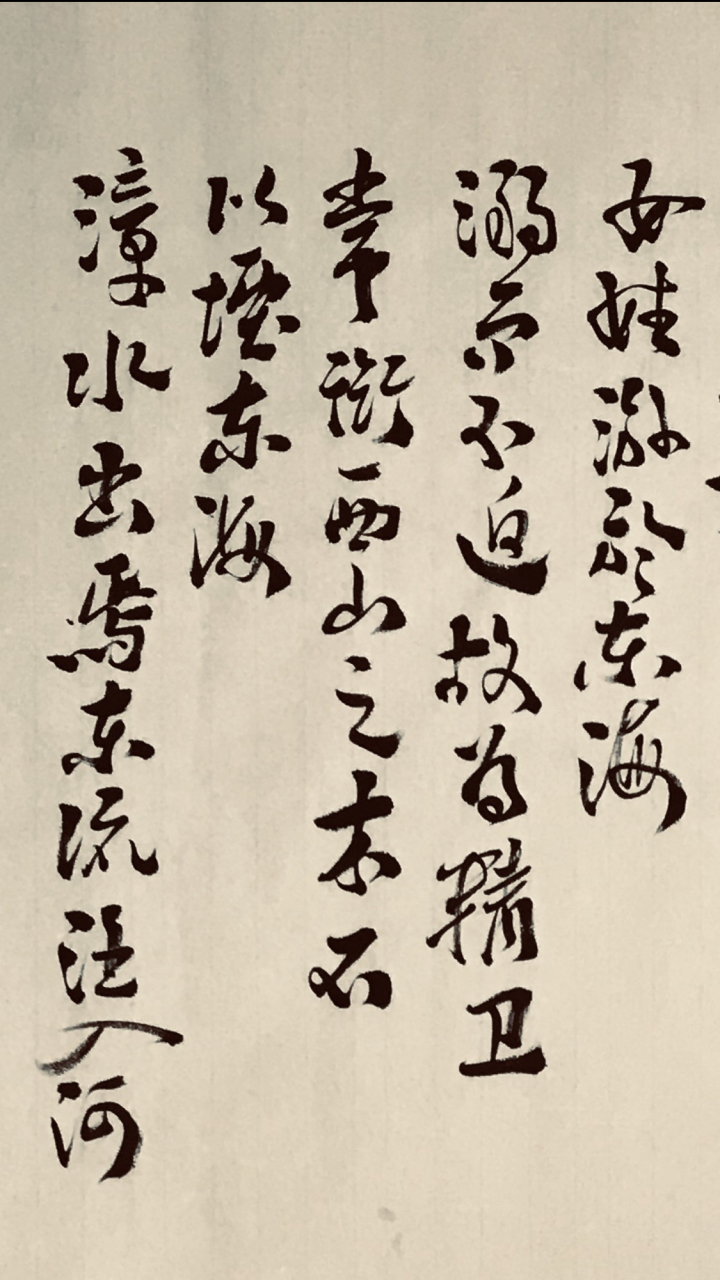 女娃游於东海
溺而不返故为精卫
常衔西山之木石
以堙东海
漳水出焉东流注入河